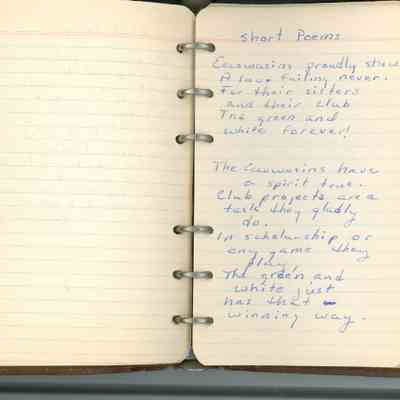 Short Poems
Ecowasins proudly show
A love failing never.
For their sisters
and their club
The green and
white forever!
The Ecowasins have
a spirit true.
Club projects are a
task they gladly
do.
In scholarship or
any game they
play
The green and
white just
has that
winning way.